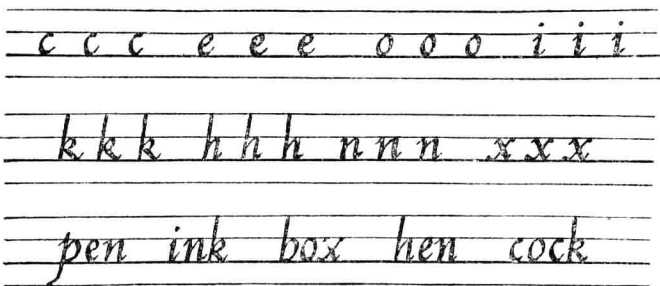 c c c e e e o o o i i i
k k k h h h n n n x x x
pen ink box hen cock